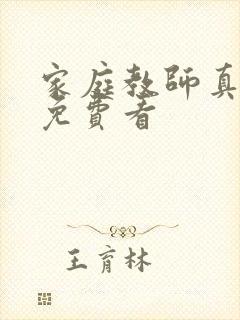 家庭教師真
免費看
王育林